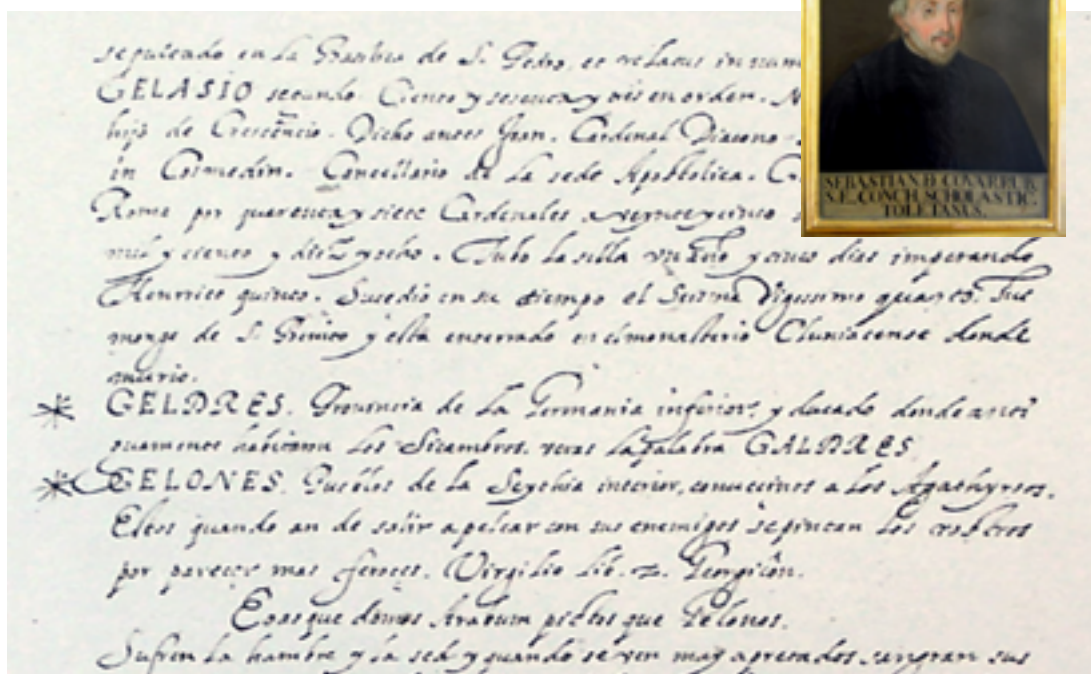 sepultado en la Basilica de S. Pedro, et relatus in num
GELASIO segundo. Ciento y sesenta y tres en orden. N
hijo de Crescēncio. Dicho antes Joan. Cardenal Diacono
in Cosmedin. Cancellario de la sede Apostolica. C
Roma por quarenta y siete Cardenales a veynte y cinco
mil y ciento y diez y ocho. Tubo la silla un año y cinco dias imperando
Henrrico quinto. Susedio en su tiempo el Scisma Vigessimo quarto. Fue
monge de S. Benito y esta enterrado en el monasterio Cluniacense donde
murio.
* GELDRES. Provincia de la Germania inferior, y ducado donde anti
guamente habitavan los Sicambros. veras la palabra GALDRES.
* GELONES. Pueblos de la Scythia interior, convecinos a los Agathyrsos.
Estos quando an de salir a pelear con sus enemigos se pintan los rostros
por parecer mas feroces. Virgilio lib. 2. Georgicôn.
Eoasque domos Arabum pictosque Gelonos.
Sufren la hambre y la sed y quando se ven muy apretados sangran sus
SEBASTIAN D COVARRUB.
S.E. CONCH. SCHOLASTIC.
TOLETANUS.